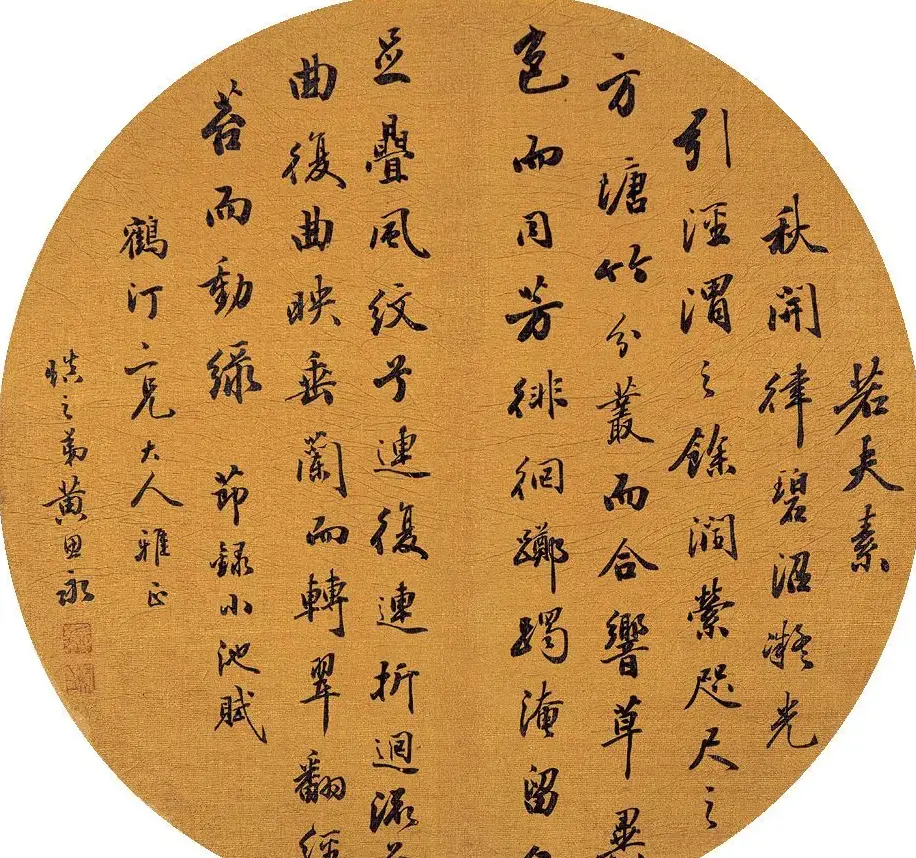 若夫素
秋開律碧沼凝光
引涇渭之餘潤縈咫尺之
方塘竹分叢而合響草異
色而同芳徘徊躑躅淹留
足疊風紋兮連復連折迴流
曲復曲映垂蘭而轉翠翻
苔而動綠 節錄小池賦
鶴汀二兄大人雅正
慎之弟黃思永